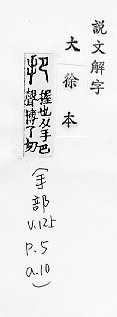 説文解字
大徐本
把 握也从手巴
聲搏下切
(手
部
V.12上
P.5
a.10)